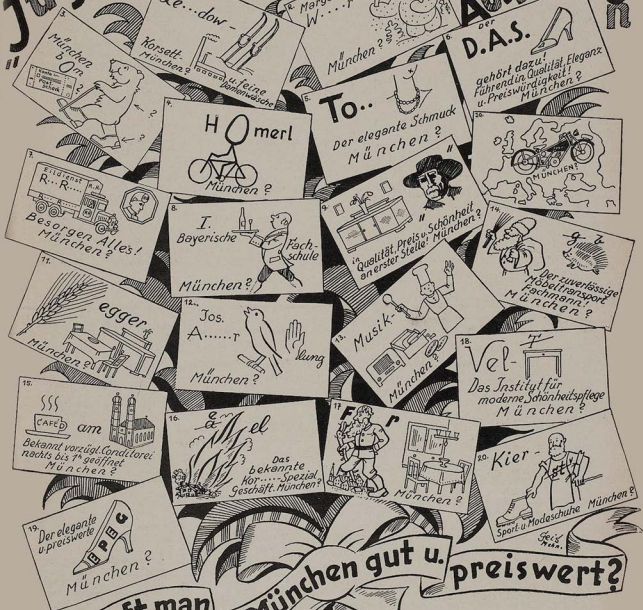 3.
München
Korsett-
München
u. feine
Damenwäsche
W....r
München?
6.
Der
D.A.S.
gehört dazu!
Führend in Qualität, Eleganz
u. Preiswürdigkeit!
München?
4.
H O merl
München?
5.
To..
Der elegante Schmuck
München?
MÜNCHEN?
7.
Eildienst
R..R....
Besorgen Alles!
München?
8.
I.
Bayerische
Fach-
schule
München?
9.
in Qualität, Preis u. Schönheit
an erster Stelle! München?
14.
g b
Der zuverlässige
Möbeltransport
Fachmann!
München?
11.
egger
München?
12.
Jos.
A......r
lung
München?
13.
Musik-
München?
18.
Vel-
Das Institut für
moderne Schönheitspflege
München?
15.
CAFÉ
am
Bekannt vorzügl. Conditorei
nachts bis 1h geöffnet
München?
16.
el
Das
bekannte
Kor.....Spezial
Geschäft. München?
17
F r
München?
20.
Kier-
Sport- u. Modeschuhe München?
19.
Der elegante
u. preiswerte
München?
München gut u.
preiswert?
ft man